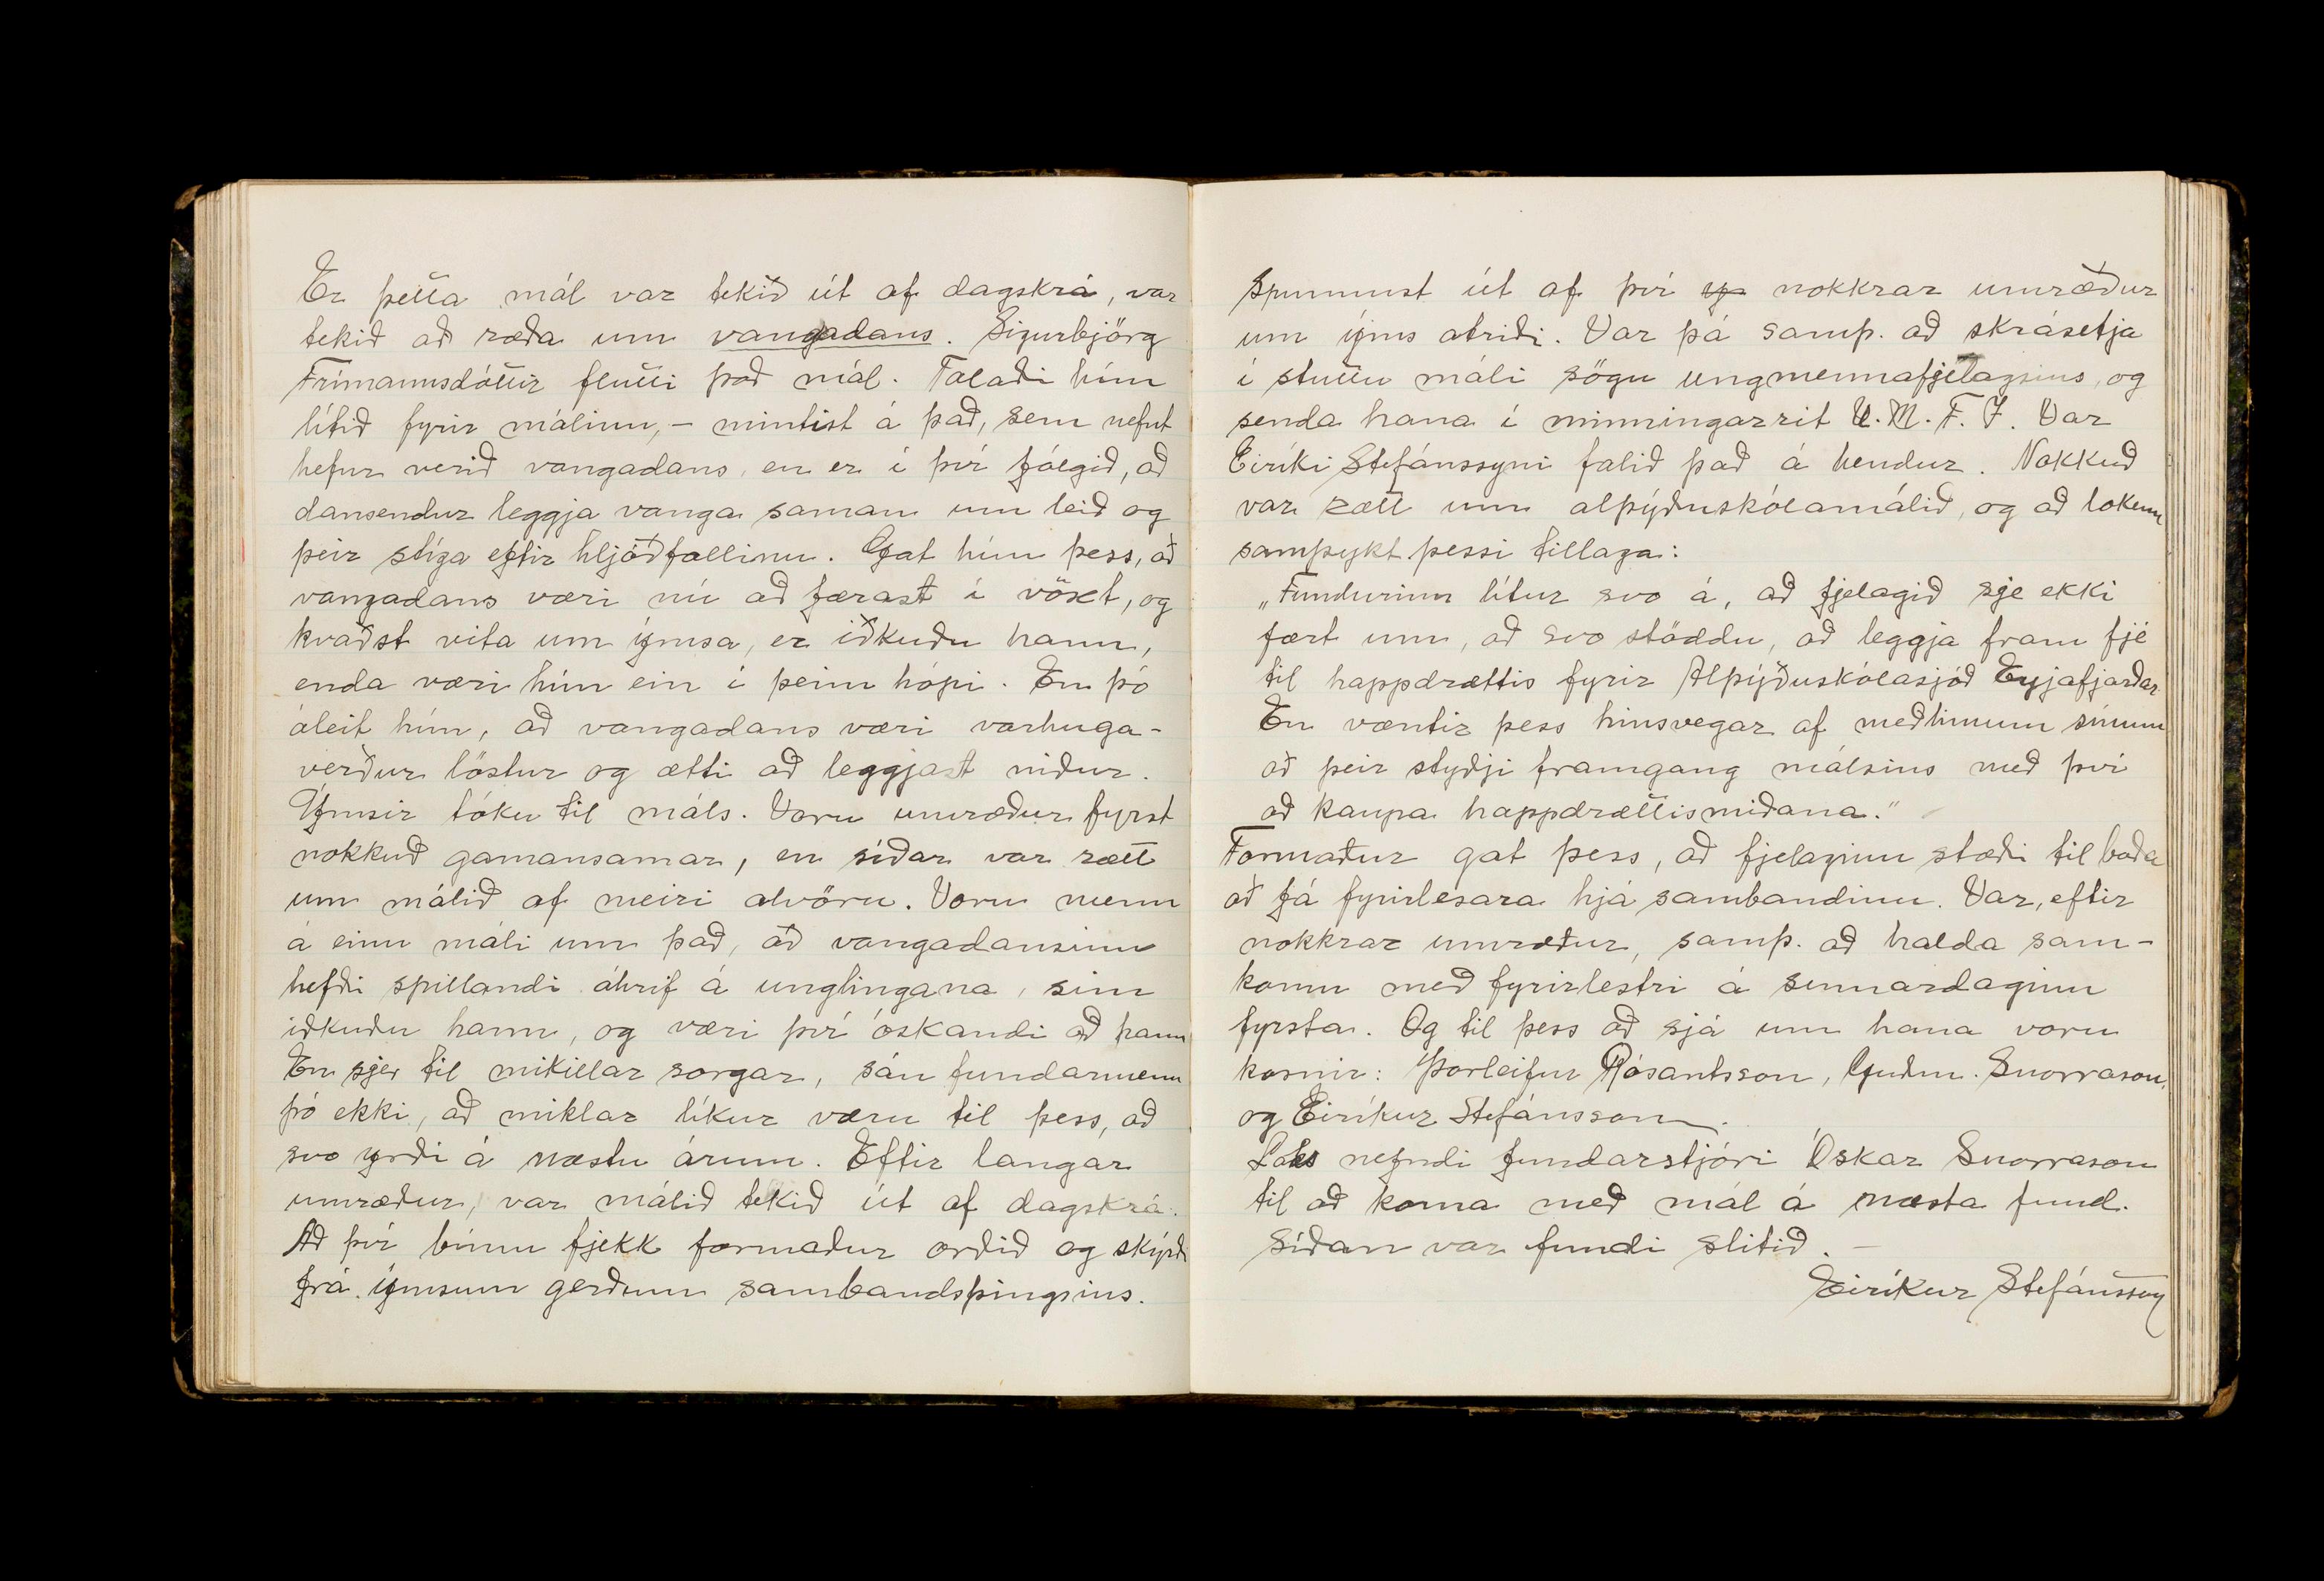 Er þetta mál var tekið út af dagskrá, var
tekið að ræða um vangadans. Sigurbjörg
Frímannsdóttir flutti það mál. Talaði hún
lítið fyrir málinu, – mintist á það, sem nefnt
hefur verið vangadans, en er í því fólgið, að
dansendur leggja vanga saman um leið og
þeir stíga eftir hljóðfallinu. Gat hún þess, að
vangadans væri nú að færast í vöxt, og
kvaðst vita um ýmsa, er iðkuðu hann,
enda væri hún ein í þeim hópi. En þó
áleit hún, að vangadans væri varhuga-
verður löstur og ætti að leggjast niður.
Ýmsir tóku til máls. Voru umræður fyrst
nokkuð gamansamar, en síðar var rætt
um málið af meiri alvöru. Voru menn
á einu máli um það, að vangadansinn
hefði spillandi áhrif á unglingana, sem
iðkuðu hann, og væri því óskandi að hann
En sjer til mikillar sorgar, sáu fundarmenn
þó ekki, að miklar líkur væru til þess, að
svo yrði á næstu árum. Eftir langar
umræður, var málið tekið út af dagskrá.
Að því búnu fjekk formaður orðið og skýrði
frá ýmsum gerðum sambandsþingsins.
Spunnust út af því nokkrar umræður
um ýms atriði. Var þá samþ. að skrásetja
í stuttu máli sögu ungmennafjelagsins, og
senda hana í minningarrit U.M.F.Í. Var
Eiríki Stefánssyni falið það á hendur. Nokkuð
var rætt um alþýðuskólamálið, og að lokum
samþykt þessi tillaga:
„Fundurinn lítur svo á, að fjelagið sje ekki
fært um, að svo stöddu, að leggja fram fje
til happdrættis fyrir Alþýðuskólasjóð Eyjafjarðar
En væntir þess hinsvegar af meðlimum sínum
að þeir styðji framgang málsins með því
að kaupa happdrættismiðana."
Formaður gat þess, að fjelaginu stæði til boða
að fá fyrirlesara hjá sambandinu. Var, eftir
nokkrar umræður, samþ. að halda sam-
komu með fyrirlestri á sunnardaginn
fyrsta. Og til þess að sjá um hana voru
kosnir: Þorleifur Rósantsson, Guðm. Snorrason,
og Eiríkur Stefánsson.
Loks nefndi fundarstjóri Óskar Snorrason
til að koma með mál á næsta fund.
Síðan var fundi slitið. –
Eiríkur Stefánsson